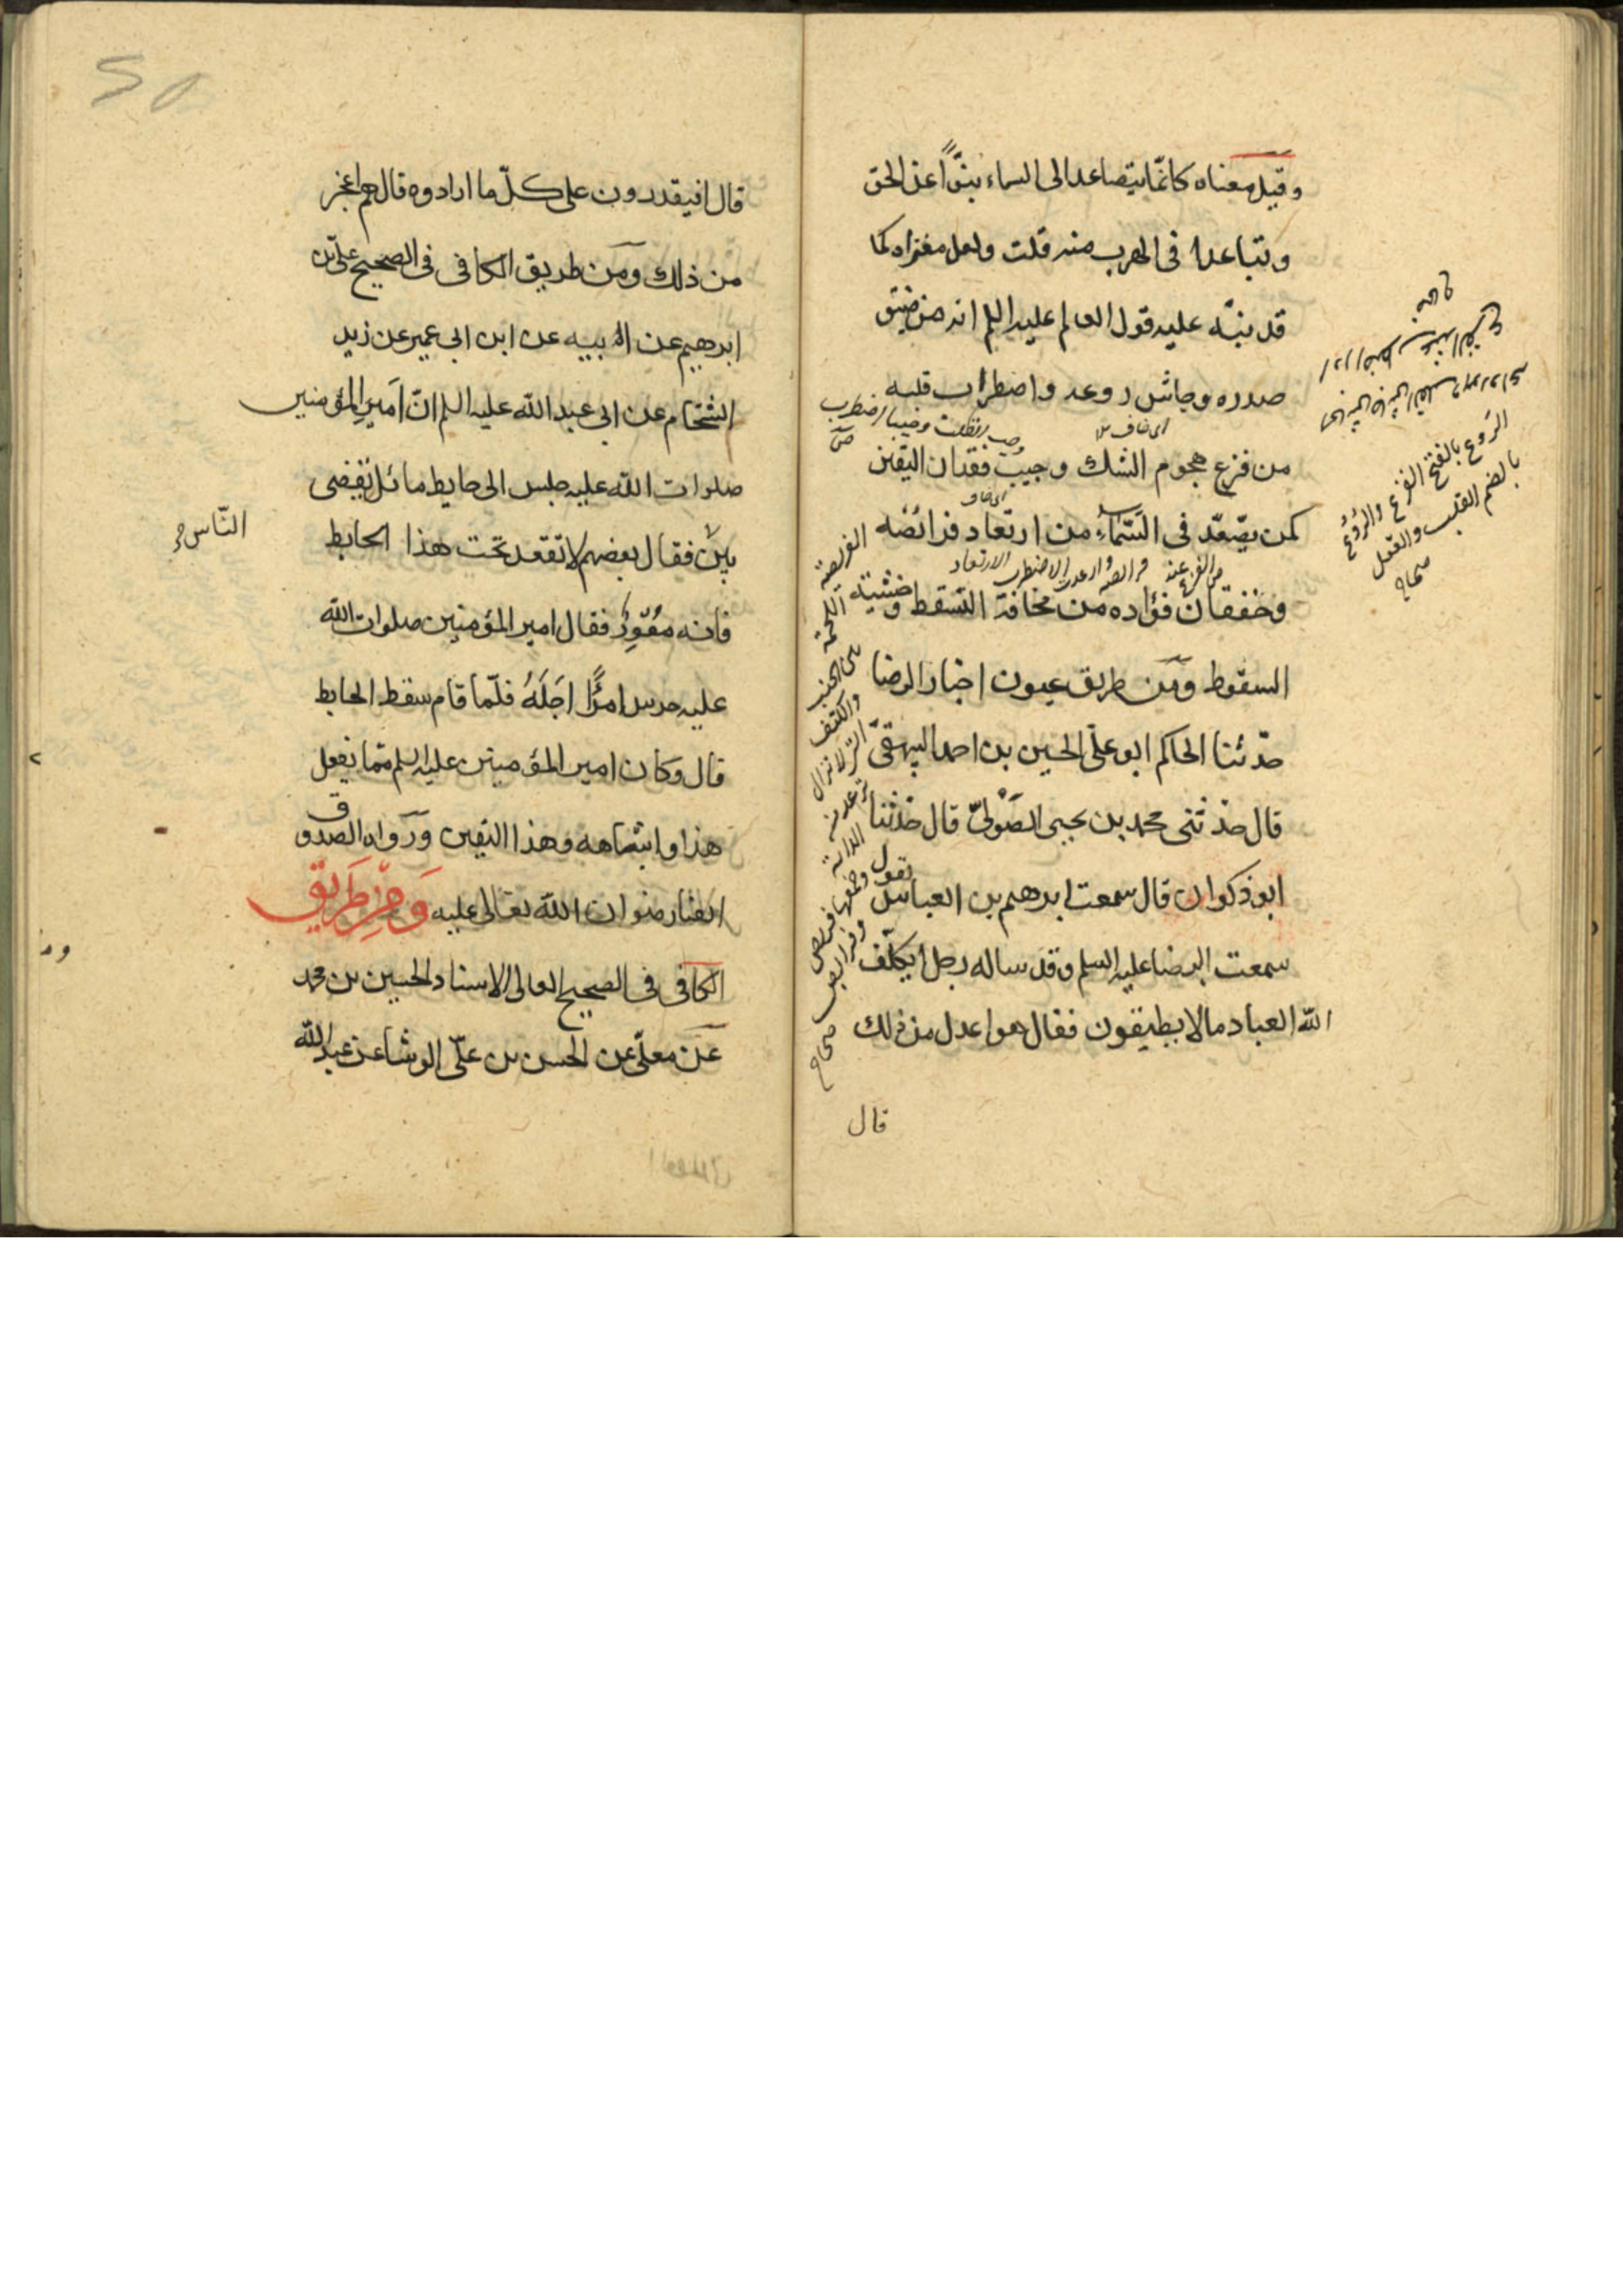 وقيل معناه كانّما يتصاعد الى السماء نبوًّا عن الحق
وتباعدا فى الهرب منه قلت ولعل مغزاه كما
قد نبّه عليه قول العالم عليه السلم انه من ضيق
صدره وجاش روعه واضطراب قلبه
من فزع هجوم الشك وجيب فقدان اليقين
كمن يصّعّد فى السّماء من ارتعاد فرائصه
وخفقان فؤاده من مخافة التسقط وخشية
السقوط ومن طريق عيون اخبار الرضا
حدّثنا الحاكم ابو على الحسين بن احمد البيهقىّ
قال حدثنى محمد بن يحيى الصّولىّ قال حدثنا
ابو ذكوان قال سمعت ابرهيم بن العباس يقول
سمعت الرضا عليه السلم وقد ساله رجل ايكلّف
اللّه العباد ما لا يطيقون فقال هو اعدل من ذلك
الرَوع بالفتح الفزع والرُوع
بالضم القلب والعقل
صحاح
وجيبا اضطرب
الفريصة
اللحمة
بين الجنب
والكتف
التى لا تزال
ترعد من
الدابة
وجمعها فريص
وفرايص
صحاح
قال
قال افيقدرون على كلّ ما ارادوه قال هم اعجز
من ذلك ومن طريق الكافى فى الصحيح علىّ بن
ابرهيم عن ابيه عن ابن ابى عمير عن زيد
الشحّام عن ابى عبد اللّه عليه السلم انّ امير المؤمنين
صلوات اللّه عليه جلس الى حايط مائل يقضى
بين فقال بعضهم لا تقعد تحت هذا الحايط
النّاس
فانه مُعْوِرٌ فقال امير المؤمنين صلوات اللّه
عليه حرس امرًأ اجَلَهُ فلمّا قام سقط الحايط
قال وكان امير المؤمنين عليه السلم ممّا يفعل
هذا واشباهه وهذا اليقين ورواه الصدوق
ايضا رضوان اللّه تعالى عليه وَمِن طَريق
الكافى فى الصحيح العالى الاسناد الحسين بن محمد
عن معلّى عن الحسن بن علىّ الوشا عن عبد اللّه